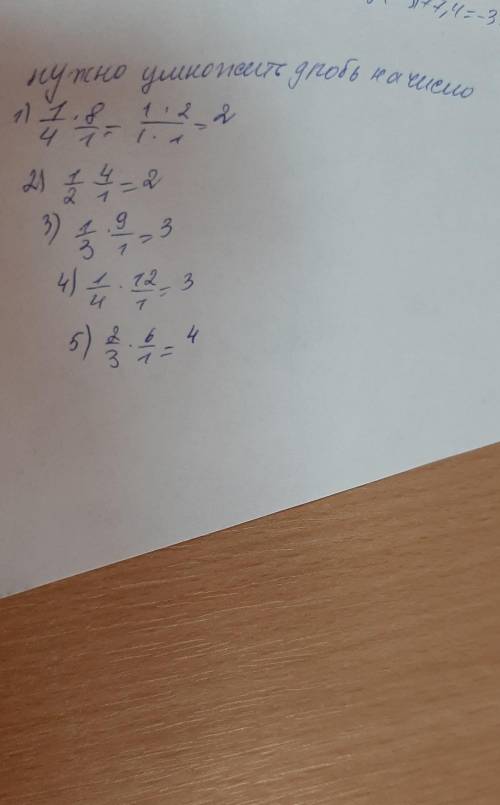 7,4=-3
нужно умножить дробь на число
1) 1/4 · 8/1 = 1 · 2/1 · 1 = 2
2) 1/2 4/1 = 2
3) 1/3 · 9/1 = 3
4) 1/4 · 12/1 = 3
5) 2/3 · 6/1 = 4